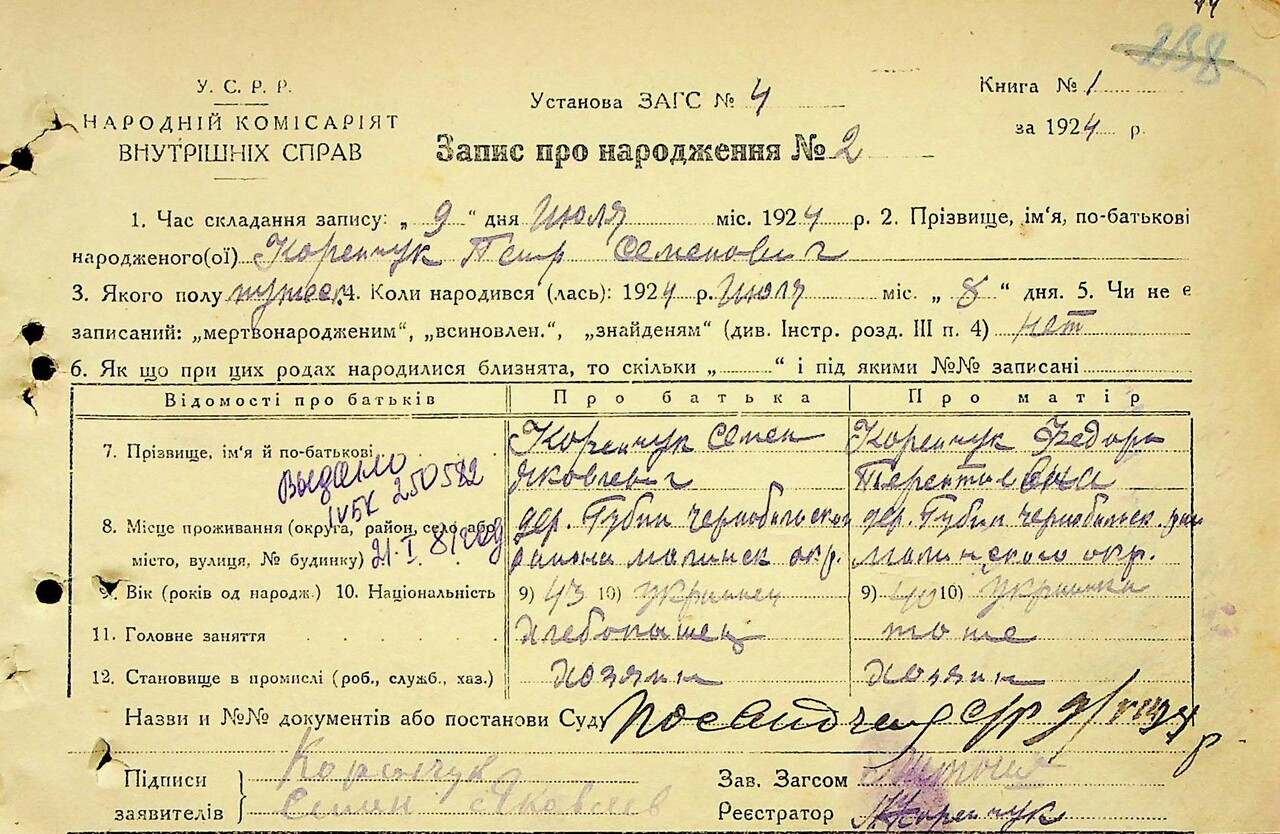 238
У. С. Р. Р.
НАРОДНІЙ КОМІСАРІЯТ
ВНУТРІШНІХ СПРАВ
Установа ЗАГС № 4
Книга № 1
за 1924 р.
Запис про народження № 2
1. Час складання запису: „ 9 “ дня Июля міс. 1924 р. 2. Прізвище, ім'я, по-батькові
народженого(ої) Коренчук Петр Семенович
3. Якого полу мужеск 4. Коли народився (лась): 1924 р. Июля міс. „ 8 “ дня. 5. Чи не є
записаний: „мертвонародженим“, „всиновлен.“, „знайденям“ (див. Інстр. розд. III п. 4) нет
6. Як що при цих родах народилися близнята, то скільки „ “ і під якими №№ записані
Відомості про батьків Про батька Про матір
7. Прізвище, ім'я й по-батькові Коренчук Семен Яковлевич Коренчук Федора
Выдано
IVБК 250582
8. Місце проживання (округа, район, село або
місто, вулиця, № будинку)
дер. Губин Чернобильской района малинск окр.
дер. Губин Чернобильск. малинского окр.
9. Вік (років од народж.) 10. Національність 9) 43 10) украинец 9) 40 10) украинка
11. Головне заняття хлебопашец то же
12. Становище в промислі (роб., служб., хаз.) хозяин хозяин
Назви и №№ документів або постанови Суду
Підписи
заявителів
Коренчук
Семен Яковлев
Зав. Загсом
Реєстратор Коренчук